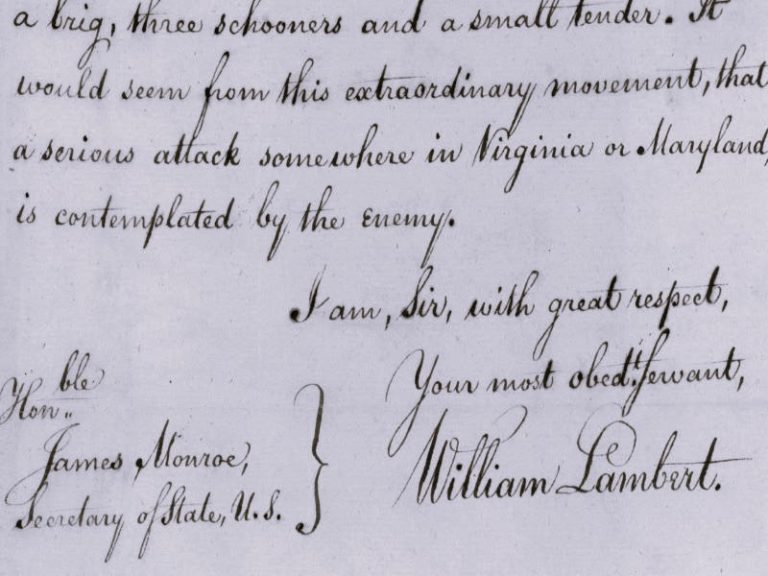 a brig, three schooners and a small tender. It
would seem from this extraordinary movement, that
a serious attack somewhere in Virginia or Maryland,
is contemplated by the Enemy.
I am, Sir, with great respect,
Your most obedt. Servant,
William Lambert.
Honble
James Monroe,
Secretary of State, U.S.